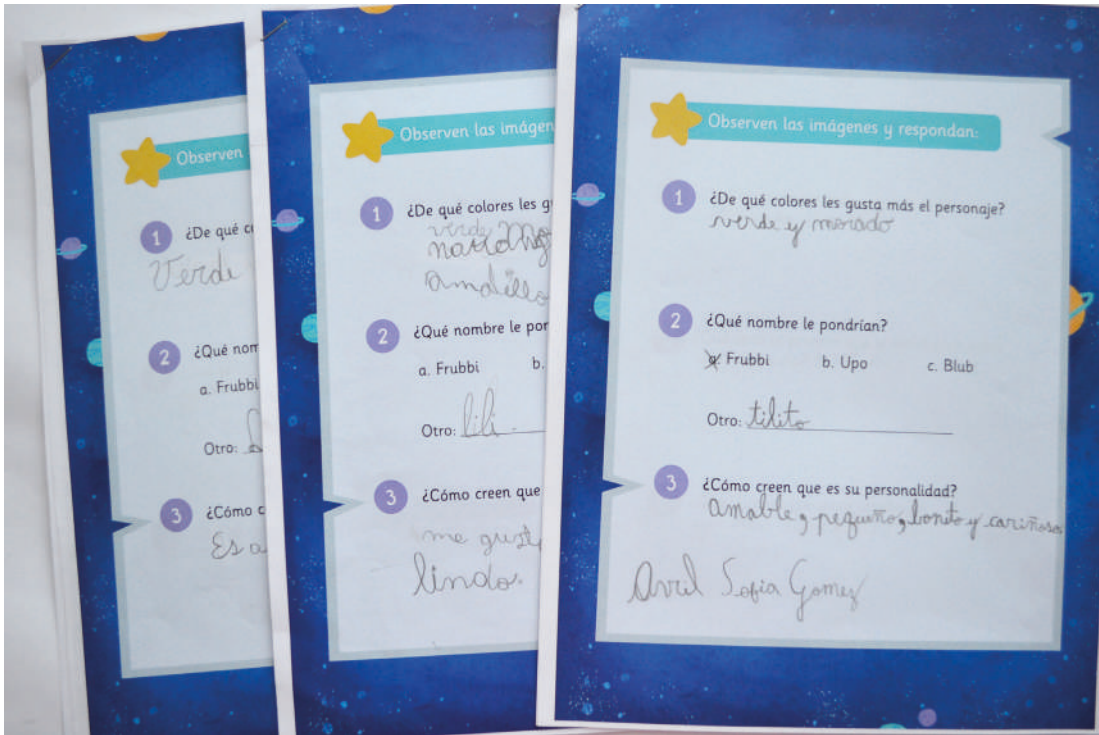 Observen
1 ¿De qué c
Verde
2 ¿Qué nom
a. Frubbi
Otro:
3 ¿Cómo c
Es a
Observen las imágen
1 ¿De qué colores les g
verde
amalillo
2 ¿Qué nombre le por
a. Frubbi b.
Otro: lili.
3 ¿Cómo creen que
me gust
lindo.
Observen las imágenes y respondan:
1 ¿De qué colores les gusta más el personaje?
verde y morado
2 ¿Qué nombre le pondrían?
a. Frubbi b. Upo c. Blub
Otro: tilito
3 ¿Cómo creen que es su personalidad?
amable, pequeño, bonito y cariñoso
Avril Sofia Gomez